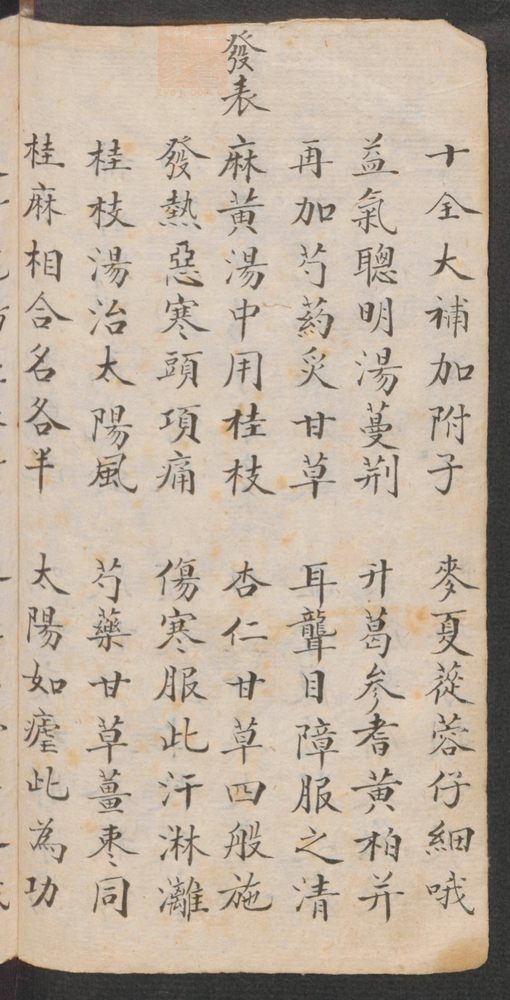 十全大補加附子　麥夏蓯蓉仔細哦
益氣聰明湯蔓荆　升葛參耆黃柏并
再加芍葯炙甘草　耳聾目障服之清
發表
麻黃湯中用桂枝　杏仁甘草四般施
發熱惡寒頭項痛　傷寒服此汗淋灕
桂枝湯治太陽風　芍藥甘草薑棗同
桂麻相合名各半　太陽如瘧此為功